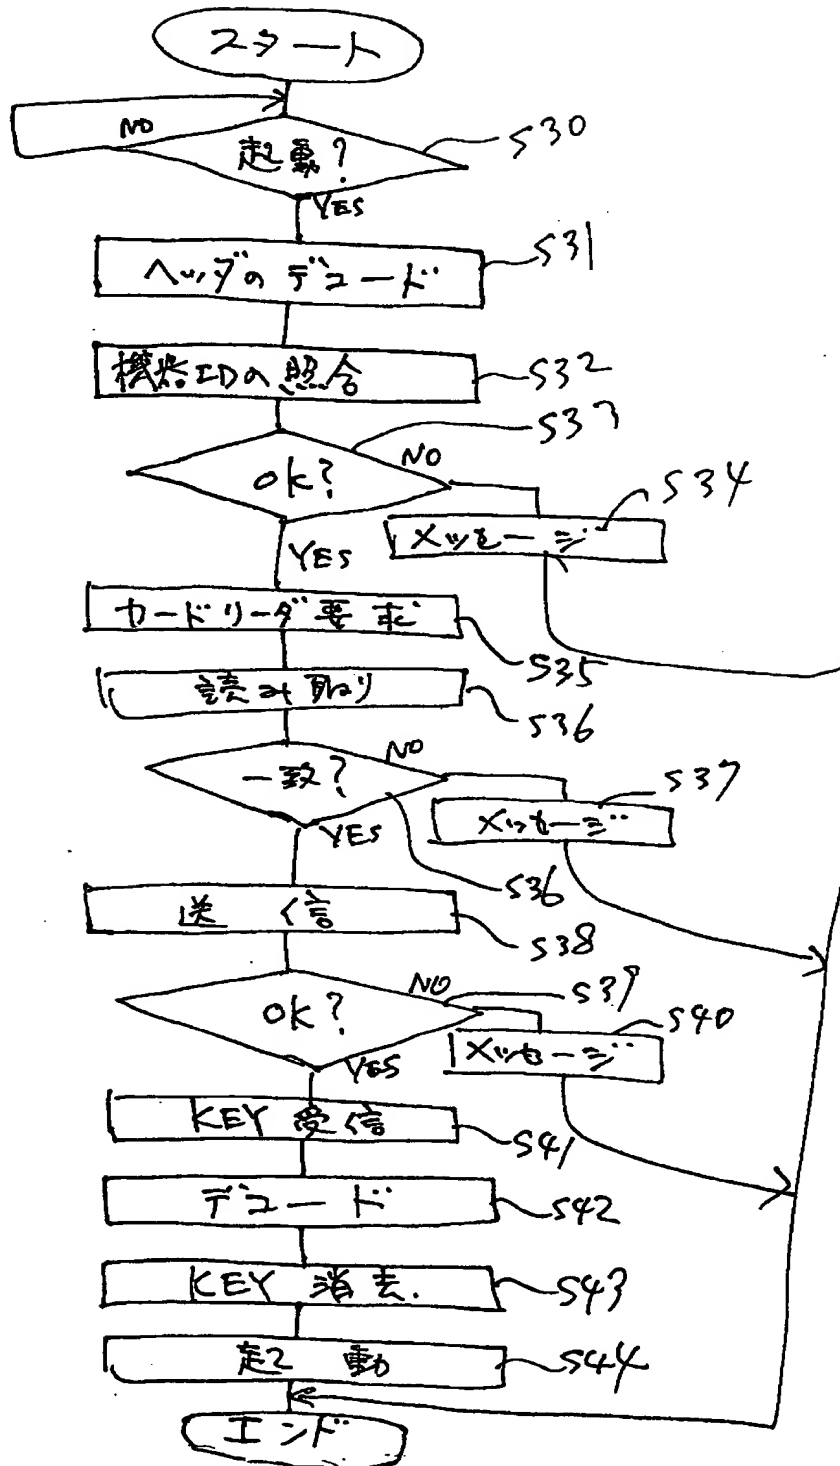 スタート
NO
起動?
S30
YES
ヘッダのデコード
S31
機器IDの照合
S32
S33
OK?
NO
S34
メッセージ
YES
カードリーダ要求
S35
読み取り
S36
一致?
NO
S37
メッセージ
YES
S36
送信
S38
OK?
NO
S39
S40
メッセージ
YES
KEY 受信
S41
デコード
S42
KEY 消去.
S43
起動
S44
エンド